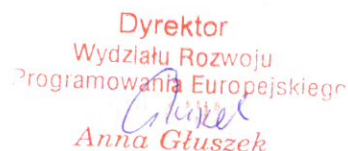 Dyrektor
Wydziału Rozwoju
Programowania Europejskiego
Anna Głuszek